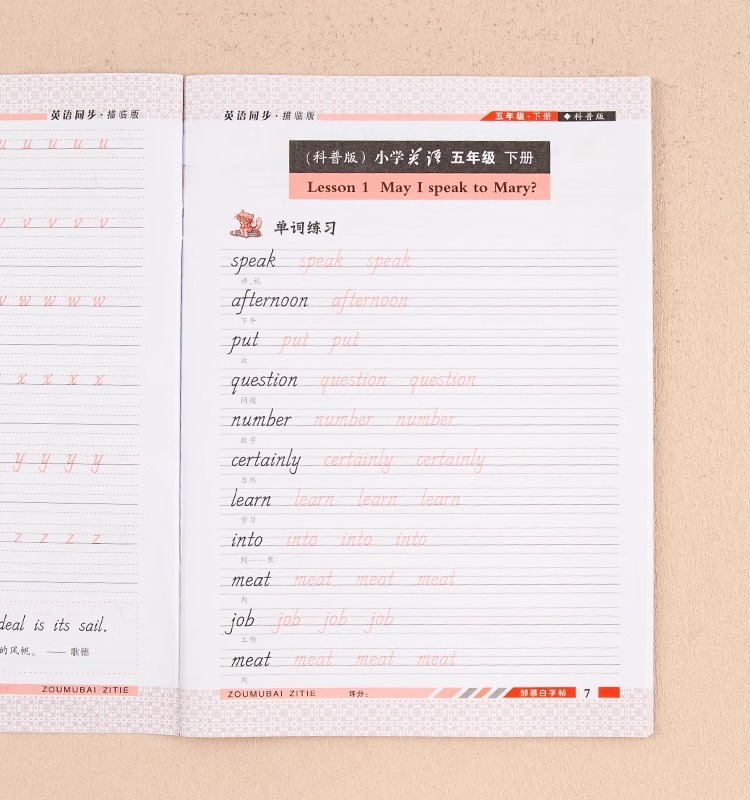 英语同步·描临版
u u u u u
v v v v v
w w w w w
x x x x
y y y y
z z z z
deal is its sail.
的风帆。 —— 歌德
ZOUMUBAI ZITIE
英语同步·描临版
五年级·下册 ◆科普版
(科普版) 小学英语 五年级 下册
Lesson 1 May I speak to Mary?
单词练习
speak speak speak
讲,说
afternoon afternoon
下午
put put put
放
question question question
问题
number number number
数字
certainly certainly certainly
当然
learn learn learn learn
学习
into into into into
到……里
meat meat meat meat
肉
job job job job
工作
meat meat meat meat
肉
ZOUMUBAI ZITIE 评分: 邹慕白字帖 7